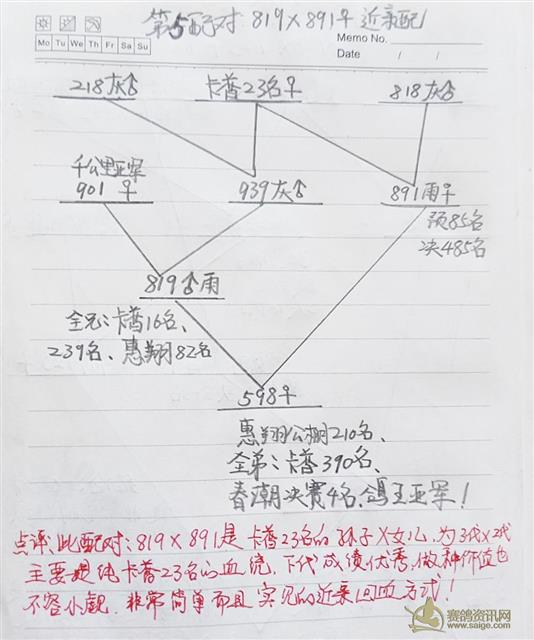 第5配对 819×891♀近亲配!
Mo Tu We Th Fr Sa Su
Memo No.
Date / /
218灰♂ 卡普23名♀ 818灰♂
千公里亚军
901 ♀ 939灰♂ 891雨♀
预85名
决485名
819♂雨
全兄:卡普16名、
239名、惠翔82名
598♀
惠翔公棚210名、
全弟:卡普390名、
春潮决赛4名,鸽王亚军!
点评:此配对:819×891是卡普23名的孙子×女儿,为3代×2代
主要是纯卡普23名的血统,下代成绩优秀,做种价值也
不容小觑.非常简单而且实见的近亲回血方式!
赛鸽资讯网
www.saige.com